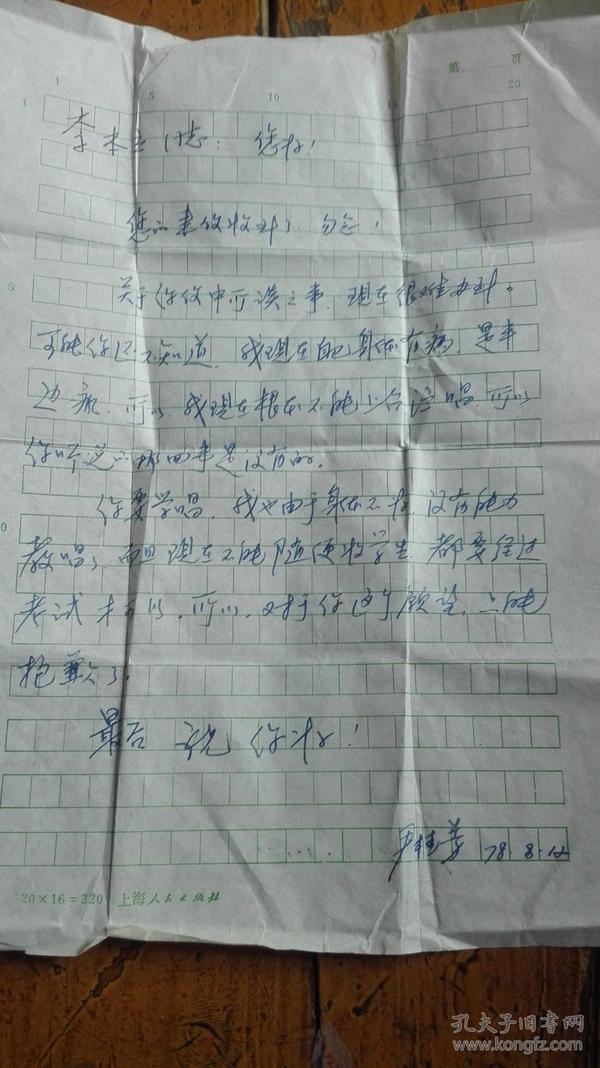 第 页
1 5 10 15 20
1
李本立同志：您好！
您的来信收到了，勿念！
5
关于你信中所谈之事，现在很难办到。
可能你还不知道，我现在的身体有病，是半
边瘫，所以，我现在根本不能上台演唱，所以
你听说的那回事是没有的。
你要学唱，我也由于身体不好，没有能力
0
教唱了，而且现在不能随便收学生，都要经过
考试才可以，所以，对于你这个愿望，只能
抱歉了。
最后 祝 你好！
尹桂芳 78.8.12
20×16=320 上海人民出版社
孔夫子旧书网
www.kongfz.com